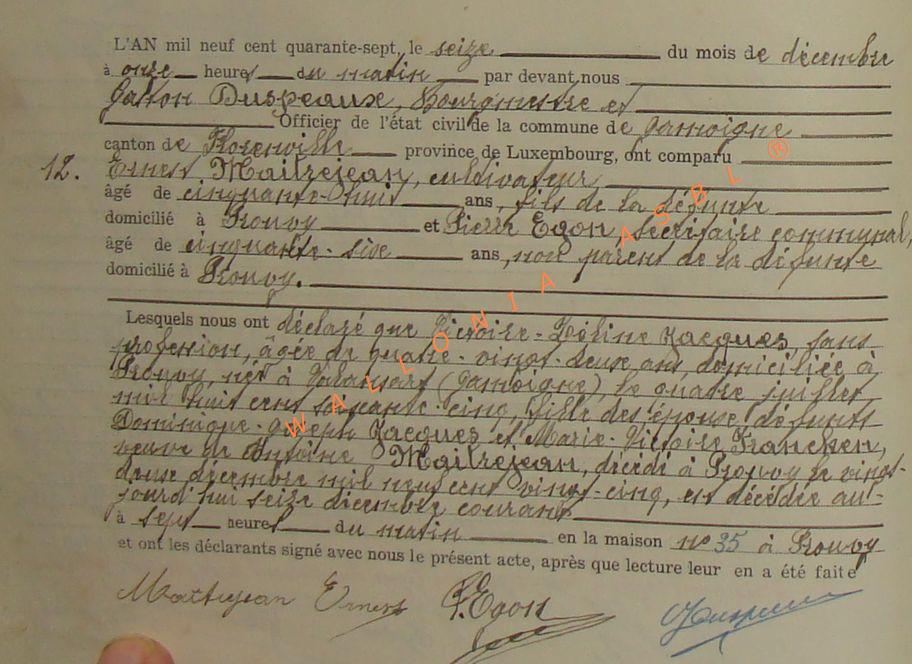 L'AN mil neuf cent quarante-sept, le seize du mois de décembre
à onze heures du matin par devant nous
Gaston Duspeaux, Bourgmestre et
Officier de l'état civil de la commune de Jamoigne
canton de Florenville province de Luxembourg, ont comparu
12. Ernest Maitrejean, cultivateur,
âgé de cinquante-huit ans, fils de la défunte
domicilié à Prouvy et Pierre Egon, secrétaire communal,
âgé de cinquante-six ans, non parent de la défunte
domicilié à Prouvy.
Lesquels nous ont déclaré que Victoire-Céline Jacques, sans
profession, âgée de quatre-vingt-deux ans, domiciliée à
Prouvy, née à Valansart (Jamoigne), le quatre juillet
mil huit cent soixante-cinq, fille des époux, défunts
Dominique-Joseph Jacques et Marie-Victoire Francken,
veuve de Antoine Maitrejean, décédé à Prouvy le vingt-
deux décembre mil neuf cent vingt-cinq, est décédée au-
jourd'hui seize décembre courant
à sept heures du matin en la maison n° 35 à Prouvy
et ont les déclarants signé avec nous le présent acte, après que lecture leur en a été faite
Maitrejean Ernest P. Egon
WALLONIA ASBL ®